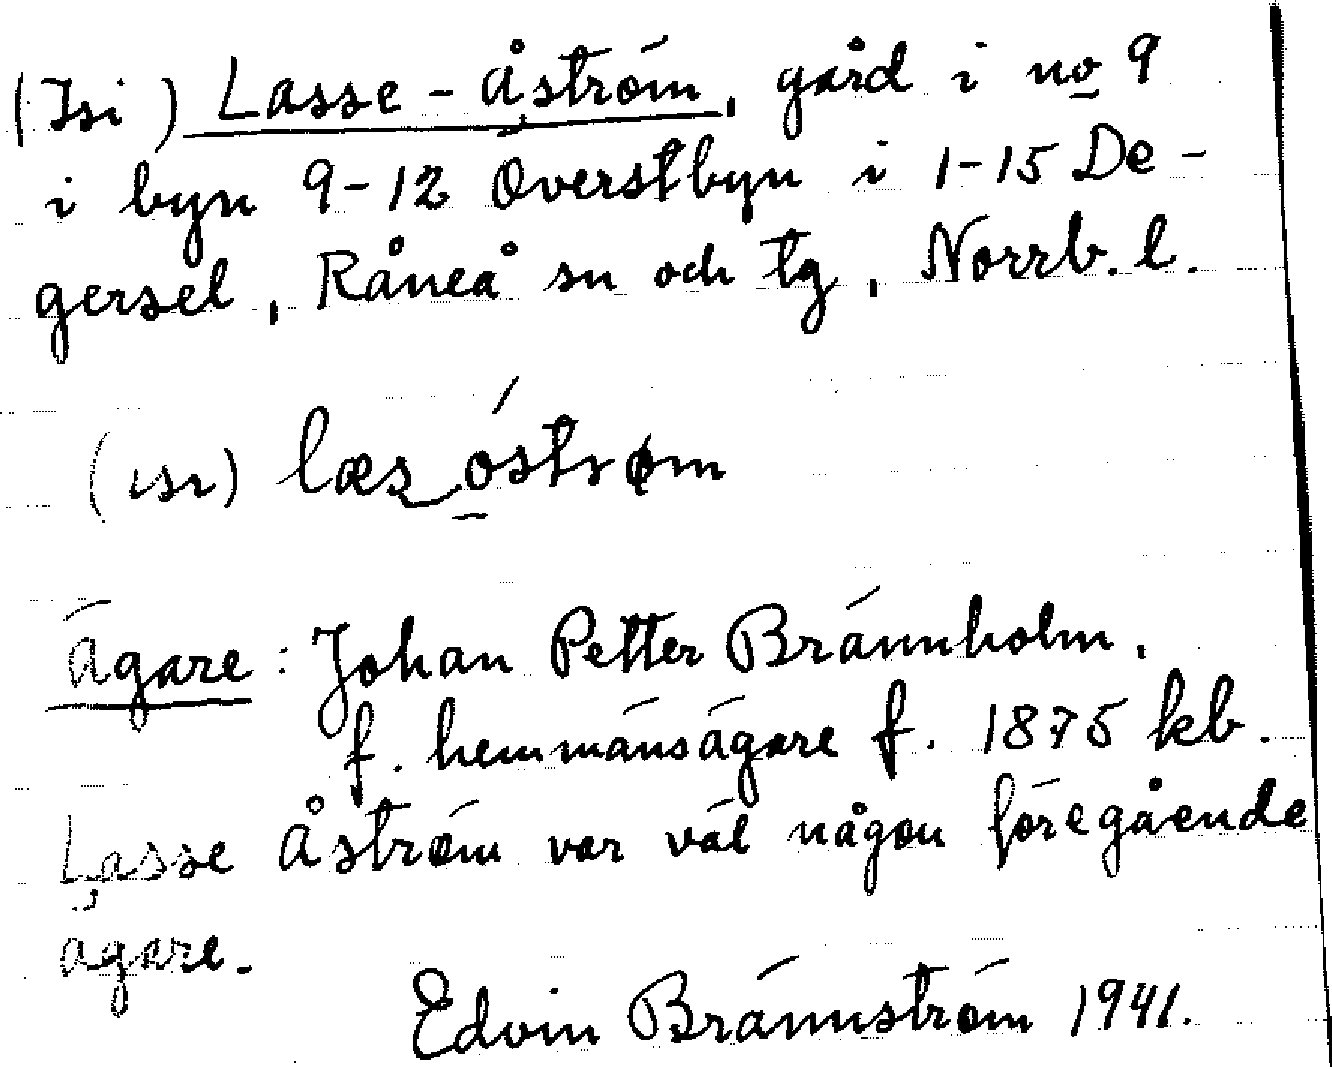 (Isi) Lasse-Åström, gård i no 9
i byn 9-12 Överstbyn i 1-15 De-
gersel, Råneå sn och tg, Norrb. l.
(ısı) læs_óstrøm
Ägare: Johan Petter Brännholm,
f. hemmansägare f. 1875 kb.
Lasse Åström var väl någon föregående
ägare.
Edvin Brännström 1941.